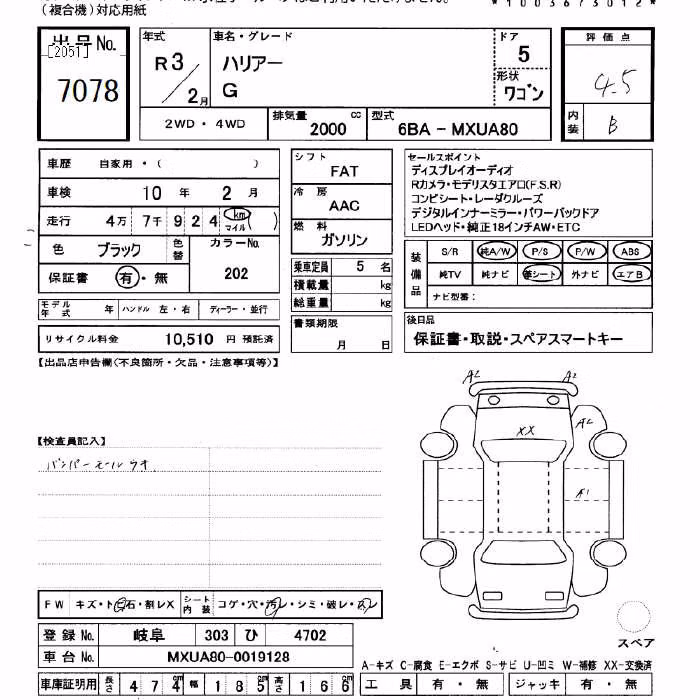 （複合機）対応用紙
*10036730​12*
出品No.
[2051]
7078
年式
R3／2月
車名・グレード
ハリアー
G
ドア
5
形状
ワゴン
評価点
4.5
内装
B
2WD・4WD
排気量
2000
cc
型式
6BA－MXUA80
車歴 自家用・（ ）
車検 10年 2月
走行 4万7千924 km マイル （ ）
色 ブラック
色替
カラーNo.
202
保証書 有・無
モデル年式 年
ハンドル 左・右
ディーラー・並行
リサイクル料金 10,510 円 預託済
シフト
FAT
冷房
AAC
燃料
ガソリン
乗車定員 5 名
積載量 kg
総重量 kg
書類期限
月 日
セールスポイント
ディスプレイオーディオ
Rカメラ・モデリスタエアロ(F.S.R)
コンビシート・レーダクルーズ
デジタルインナーミラー・パワーバックドア
LEDヘッド・純正18インチAW・ETC
装備品
S/R 純A/W P/S P/W ABS
純TV 純ナビ 革シート 外ナビ エアB
ナビ型番：
後日品
保証書・取説・スペアスマートキー
【出品店申告欄(不良箇所・欠品・注意事項等)】
【検査員記入】
バンパーモールウオ
A2
A2
A2
XX
A1
スペア
FW キズ・ト石・割レX
シート内装
コゲ・穴・汚レ・シミ・破レ・
登録No. 岐阜 303 ひ 4702
車台No. MXUA80-0019128
A-キズ C-腐食 E-エクボ S-サビ U-凹ミ W-補修 XX-交換済
車庫証明用 長さ 474cm 幅 185cm 高さ 166cm
工具 有・無 ジャッキ 有・無